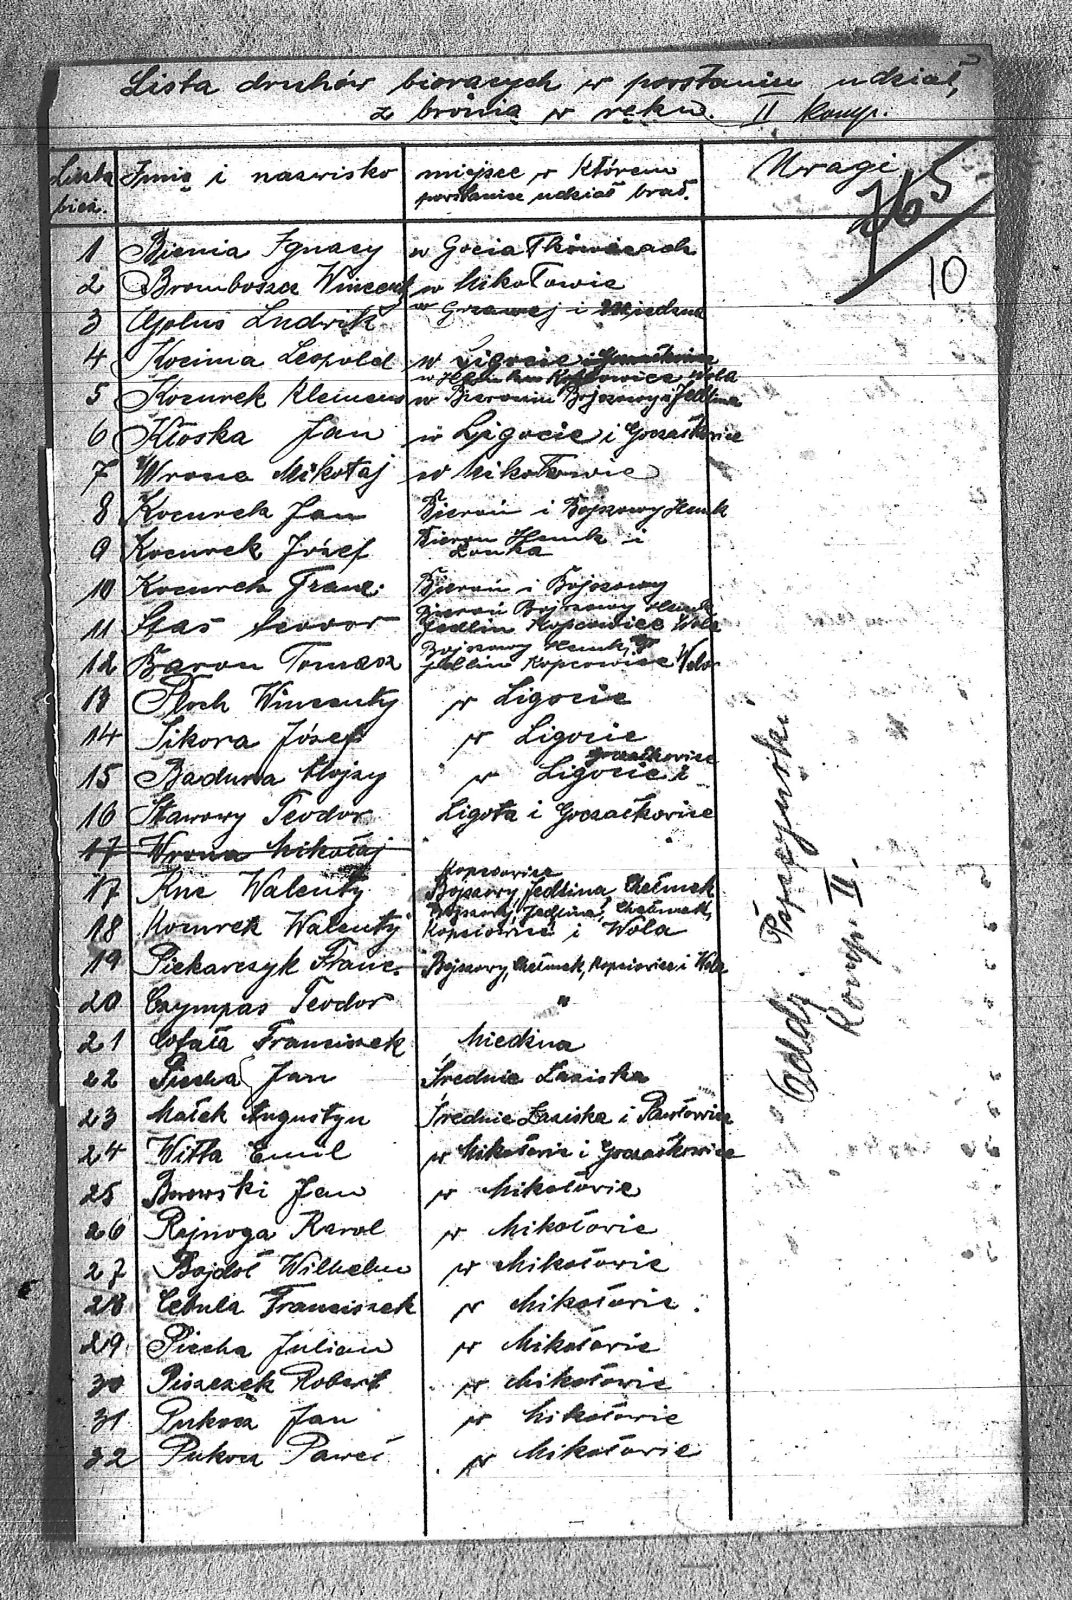 Lista druhów biorących w powstaniu udział,
z bronią w ręku. II komp.
Liczba bież. Imię i nazwisko miejsce w którem powstaniu udział brał. Uwagi
765
10
1 Bienia Ignacy w Goczałkowicach
2 Brombosz Wincenty w Mikołowie
3 Ludwik w Grzawej i Miedzna
4 Kocima Leopold w Ligocie i Goczałkowice
5 Kocurek Klemens w Bieruniu Bojszowy Jedlina
6 Kłoska Jan w Ligocie i Goczałkowice
7 Wrona Mikołaj w Mikołowie
8 Kocurek Jan Bieruń i Bojszowy
9 Kocurek Józef Bieruń i Łonka
10 Kocurek Franc. Bieruń i Bojszowy
11 Staś Bieruń Bojszowy Jedlin Kopcowice Wola
12 Baron Tomasz Bojszowy Jedlin Kopcowice Wola
13 Płoch Wincenty w Ligocie
14 Sikora Józef w Ligocie
15 Badura Alojzy w Ligocie i Goczałkowice
16 Stawowy Teodor Ligota i Goczałkowice
17 Wrona Mikołaj
17 Knc Walenty Kopcowice Bojszowy, Jedlina, Chełmek
18 Kocurek Walenty Bojszowy, Jedlina, Chełmek, Kopciowice i Wola
19 Piekarczyk Franc. Bojszowy, Chełmek, Kopciowice i Wola
20 Czympas Teodor "
21 Cofała Franciszek Miedzna
22 Piecha Jan Średnie Łaziska
23 Małek Augustyn Średnie Łaziska i Pawłowice
24 Witta Emil w Mikołowie i Goczałkowice
25 Borowski Jan w Mikołowie
26 Rajnoga Karol w Mikołowie
27 Bojdoł Wilhelm w Mikołowie
28 Cebula Franciszek w Mikołowie.
29 Piecha Julian w Mikołowie
30 Piszczek Robert w Mikołowie
31 Pukocz Jan w Mikołowie
32 Pukocz Paweł w Mikołowie
Oddz. Pszczyński
Komp. II.